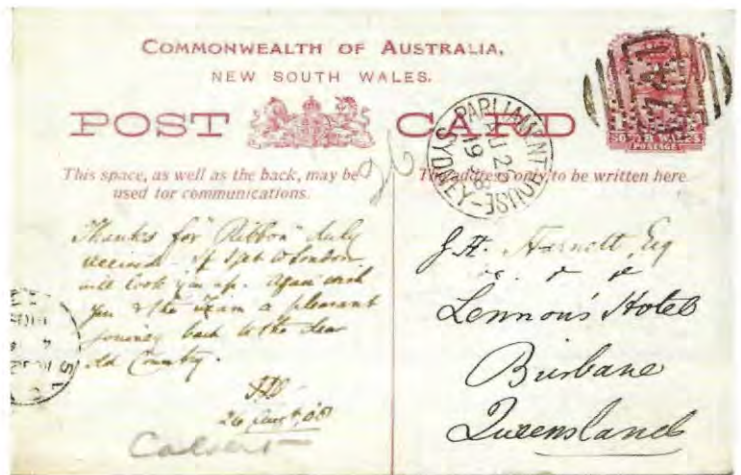 COMMONWEALTH OF AUSTRALIA.
NEW SOUTH WALES.
POST CARD
This space, as well as the back, may be
used for communications.
The address only to be written here.
PARLIAMENT HOUSE-SYDNEY
AU 26
08
SOUTH WALES
POSTAGE
Thanks for "Ribbon" duly
received. If I get to London
will look you up. Again wish
you & the Team a pleasant
journey back to the dear
old Country.
26 Aug t, 08
Calvert
J. H. Harnett, Esq
Lennon's Hotel
Brisbane
Queensland